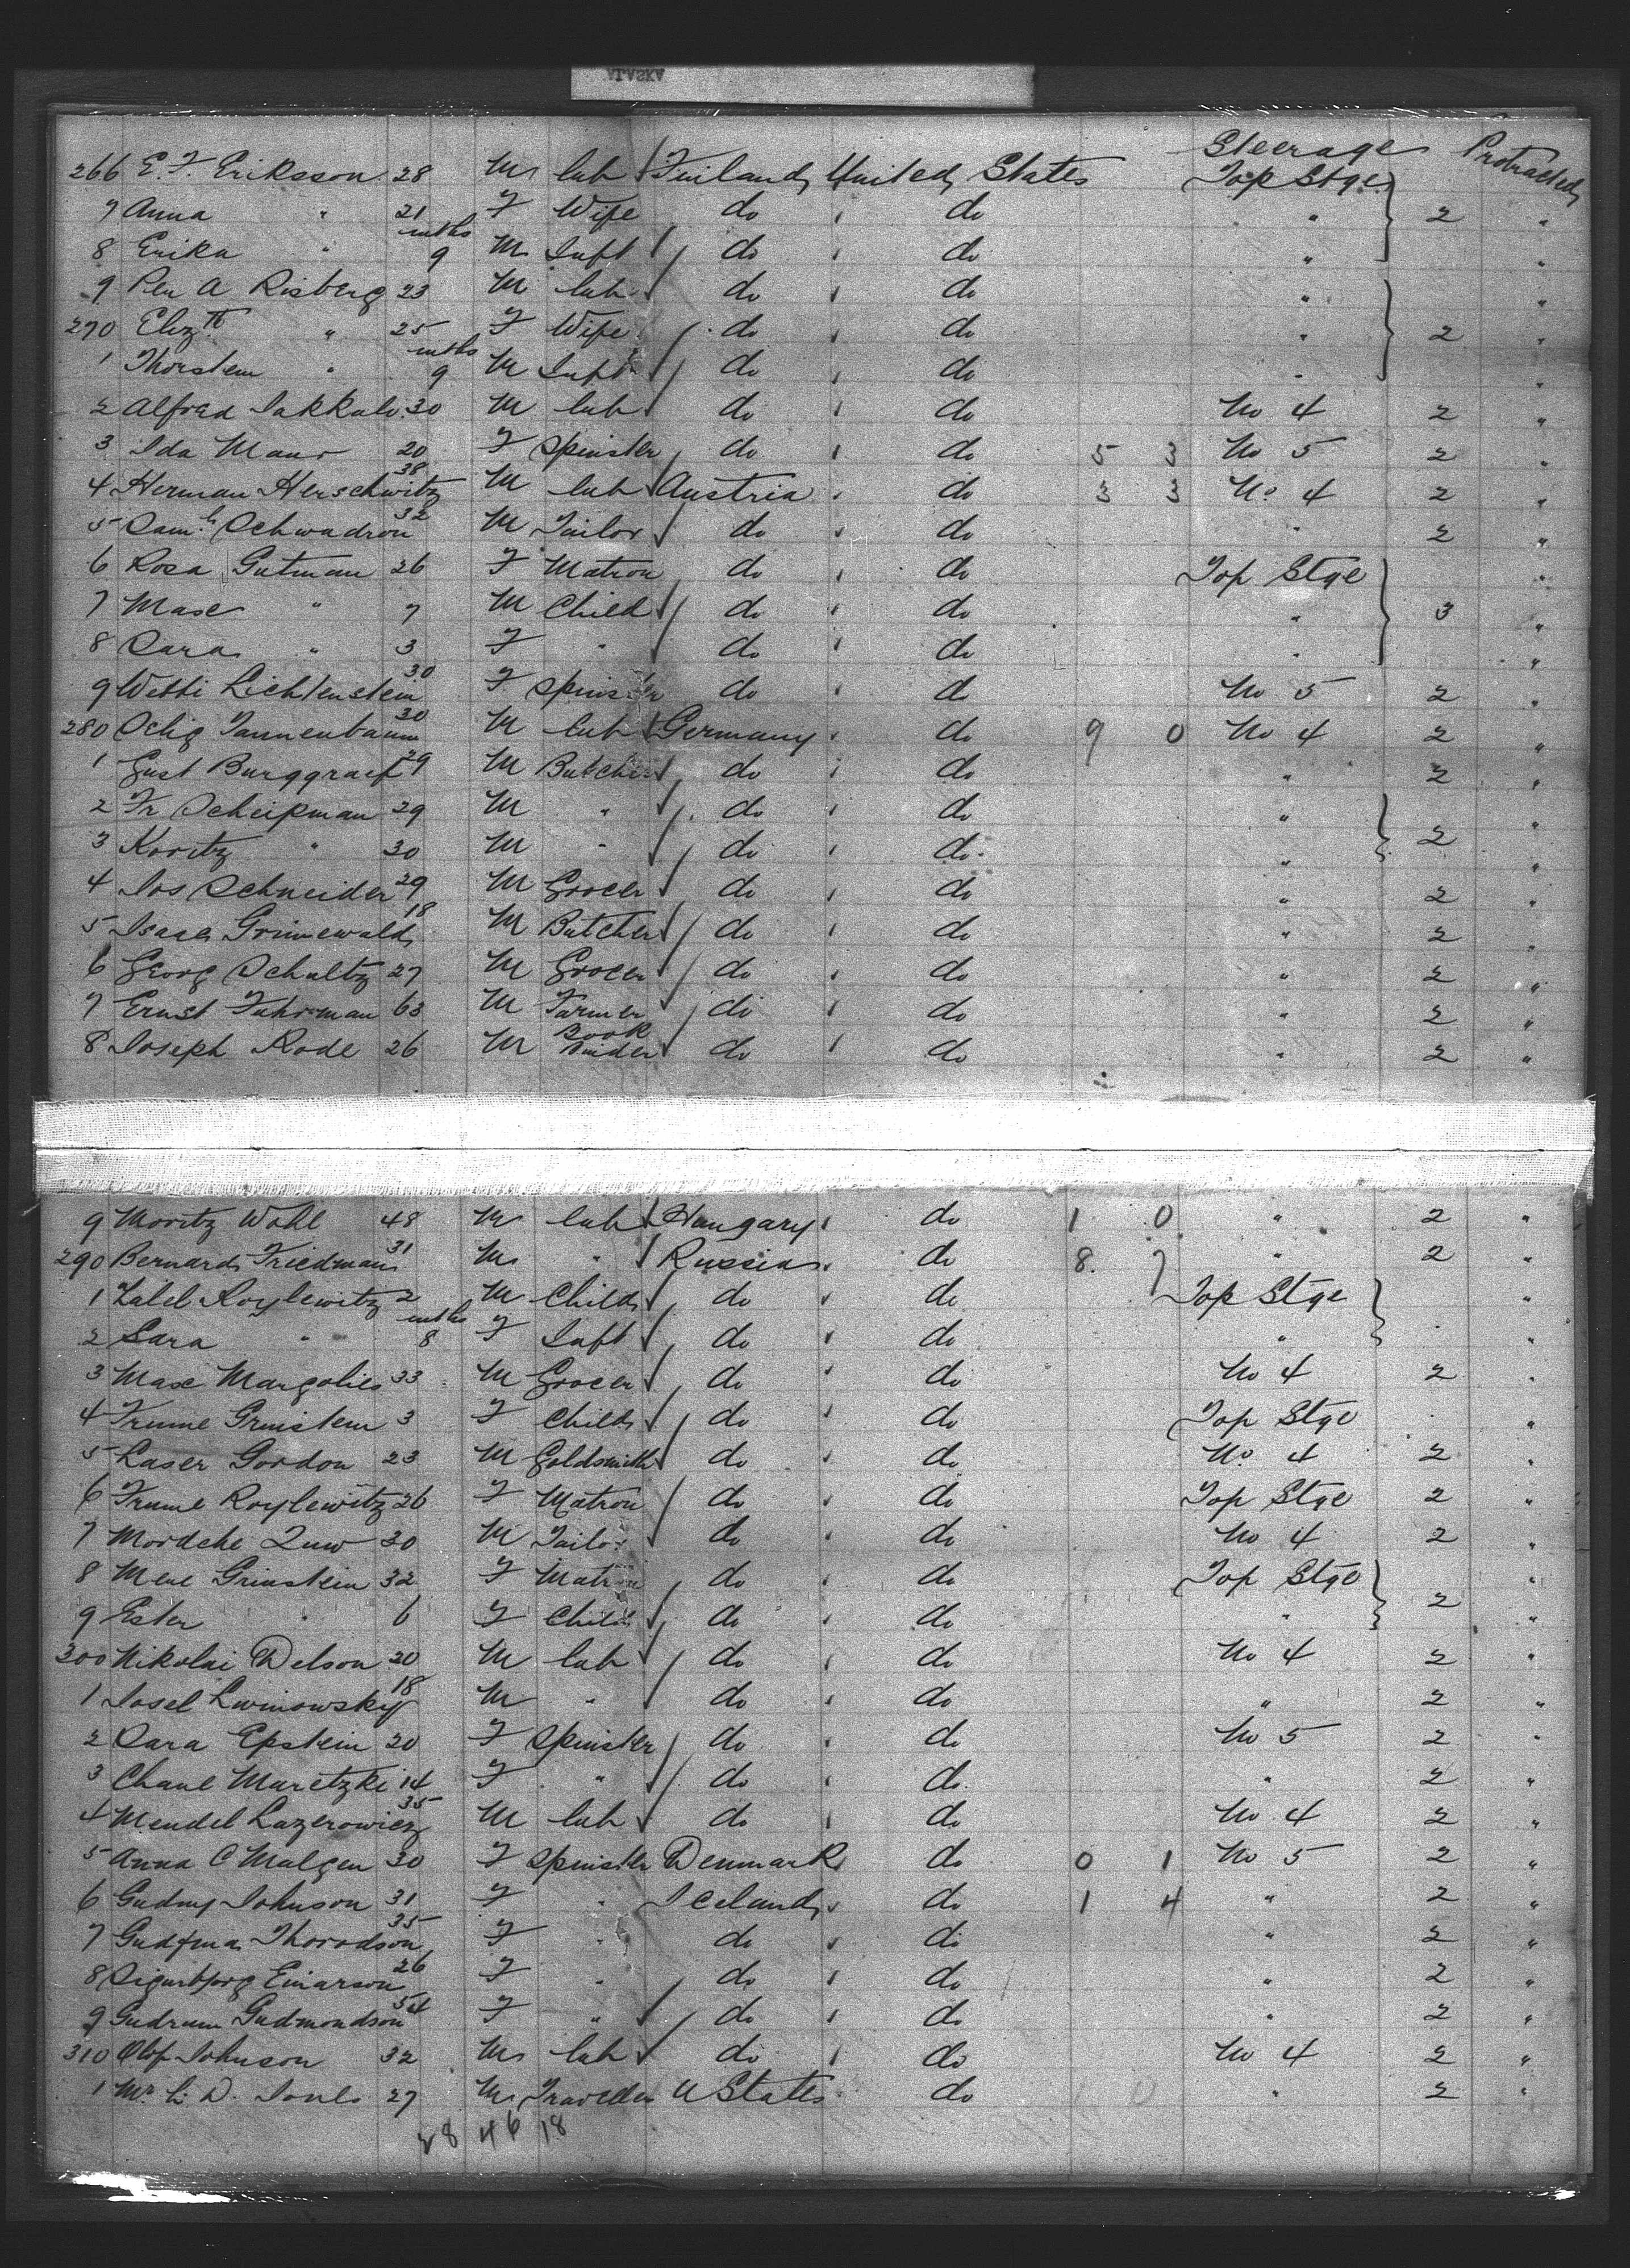 Steerage Protracted
266 E. F. Eriksson 28 M lab Finland United States Top Stge
7 Anna " 21 F Wife do " do " 2 "
8 Erika " mths 9 M Inft do " do " "
9 Per A Risberg 23 M lab do " do " "
270 Elizth " 25 F Wife do " do " 2 "
1 Thorstein " mths 9 M Inft do " do " "
2 Alfred Jakkula 30 M lab do " do No 4 2 "
3 Ida Maur 20 F Spinster do " do 5 3 No 5 2 "
4 Herman Herschwitz 38 M lab Austria " do 3 3 No 4 2 "
5 Saml Schwadron 32 M Tailor do " do " 2 "
6 Rosa Gutman 26 F Matron do " do Top Stge "
7 Max " 7 M Child do " do " 3 "
8 Sara " 3 F " do " do " "
9 Wetti Lichtenstein 30 F Spinster do " do No 5 2 "
280 Selig Tannenbaum 30 M lab Germany " do 9 0 No 4 2 "
1 Gust Burggraef 29 M Butcher do " do " 2 "
2 Fr Scheipman 29 M " do " do " "
3 Moritz " 30 M " do " do " 2 "
4 Jos Schneider 29 M Grocer do " do " 2 "
5 Isaac Grunewald 18 M Butcher do " do " 2 "
6 Georg Schultz 27 M Grocer do " do " 2 "
7 Ernst Fuhrman 63 M Farmer do " do " 2 "
8 Joseph Rode 26 M Book Binder do " do " 2 "
9 Moritz Wohl 48 M lab Hungary " do 1 0 " 2 "
290 Bernard Friedman 31 M " Russia " do 8 7 " 2 "
1 Lalel Roylewitz 2 M Child do " do Top Stge "
2 Sara " mths 8 F Inft do " do " "
3 Max Margolies 33 M Grocer do " do No 4 2 "
4 Frume Grinstein 3 F Child do " do Top Stge "
5 Laser Gordon 23 M Goldsmith do " do No 4 2 "
6 Frume Roylewitz 26 F Matron do " do Top Stge 2 "
7 Mordche Zuw 30 M Tailor do " do No 4 2 "
8 Mene Grinstein 32 F Matron do " do Top Stge "
9 Ester " 6 F Child do " do " 2 "
300 Nikolai Delson 20 M lab do " do No 4 2 "
1 Josel Lwinowsky 18 M " do " do " 2 "
2 Sara Epstein 20 F Spinster do " do No 5 2 "
3 Chane Maretzki 14 F " do " do " 2 "
4 Mendel Lazerowicz 35 M lab do " do No 4 2 "
5 Anna C Malgen 30 F Spinster Denmark do 0 1 No 5 2 "
6 Gudny Johnson 31 F " Iceland " do 1 4 " 2 "
7 Gudfina Thorodson 35 F " do " do " 2 "
8 Sigurbjorg Einarson 26 F " do " do " 2 "
9 Gudrun Gudmondson 54 F " do " do " 2 "
310 Olof Johnson 32 M lab do " do No 4 2 "
1 Mr L. D. Jones 27 M Traveller U States do 0 " 2 "
28 46 18